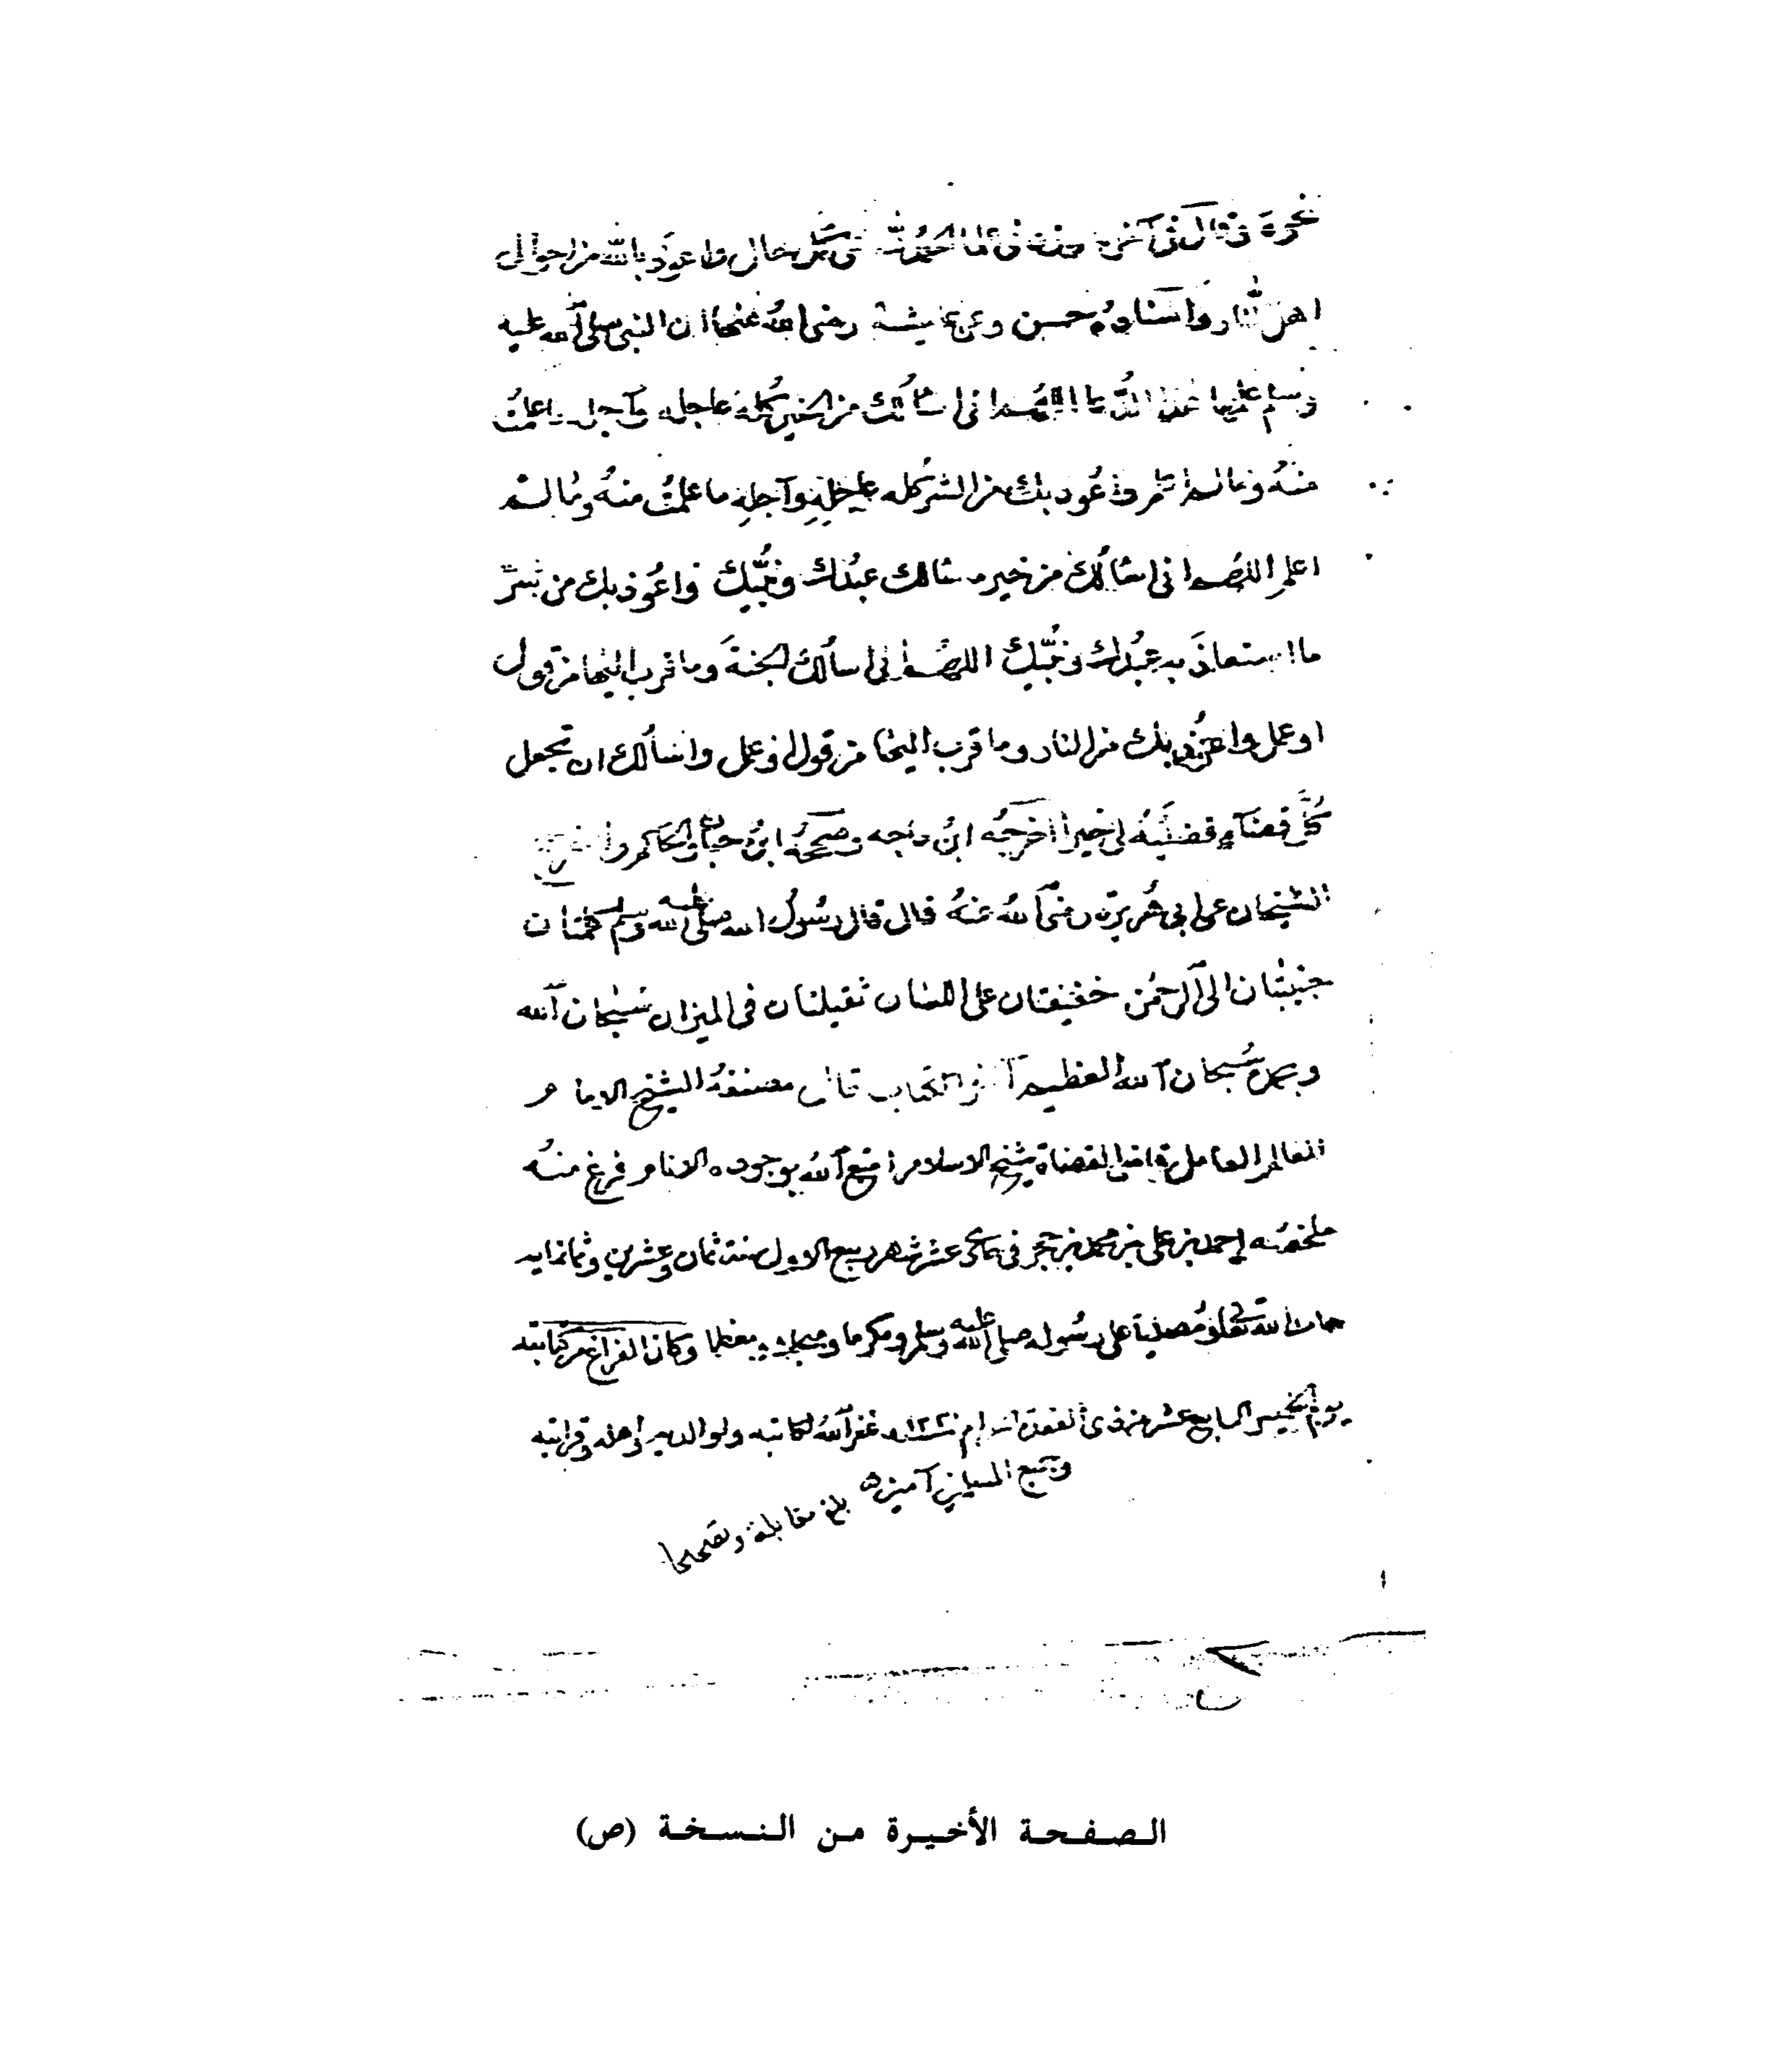 نحوه وقال في آخره وزدني علما الحمد لله على كل حال واعوذ بالله من احوال
اهل النار واسناده حسن وعن عايشة رضي الله عنها ان النبي صلى الله عليه
وسلم علمها هذا الدعا اللهم اني اسألك من الخير كله عاجله وآجله ما علمت
منه وما لم اعلم واعوذ بك من الشر كله عاجله وآجله ما علمت منه وما لم
اعلم اللهم اني اسألك من خير ما سالك عبدك ونبيك واعوذ بك من شر
ما استعاذ به عبدك ونبيك اللهم اني اسألك الجنة وما قرب اليها من قول
او عمل واعوذ بك من النار وما قرب اليها من قول او عمل واسألك ان تجعل
كل قضآء قضيته لي خيرا اخرجه ابن ماجه وصححه ابن حبان والحاكم واخرج
الشيخان عن ابي هريرة رضي الله عنه قال قال رسول الله صلى الله عليه وسلم كلمتان
حبيبتان الى الرحمن خفيفتان على اللسان ثقيلتان في الميزان سبحان الله
وبحمده سبحان الله العظيم آخر الكتاب قال مصنفه الشيخ الامام
العالم العامل قاضي القضاة شيخ الاسلام امتع الله بوجوده الانام فرغ منه
ملخصه احمد بن علي بن محمد بن حجر في حادي عشر شهر ربيع الاول سنة ثمان وعشرين وثمانمايه
حامدا لله تعالى ومصليا على رسوله صلى الله عليه وسلم ومكرما ومبجلا ومعظما وكان الفراغ من كتابته
يوم الخميس السابع عشر من ذي القعدة الحرام غفر الله لكاتبه ولوالديه واهله وقرابته
وجميع المسلمين آمين
بلغ مقابلة وتصحيحا
الصفحة الأخيرة من النسخة (ص)